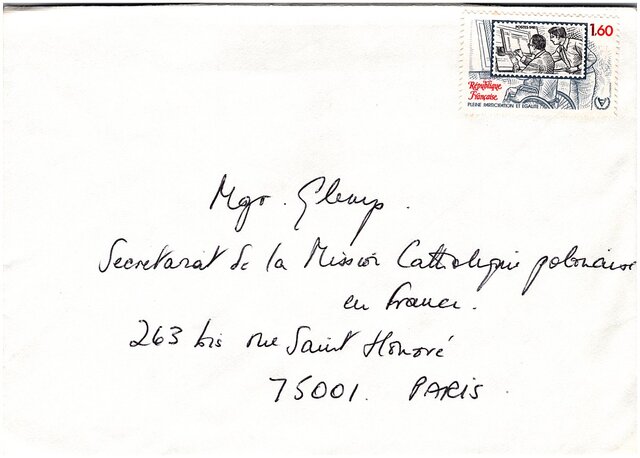 POSTES 1981
1.60
République
Française
PLEINE PARTICIPATION ET EGALITE
Mgr. Glemp.
Secretariat de la Mission Catholique polonaise
en France.
263 bis rue Saint Honoré
75001. PARIS.